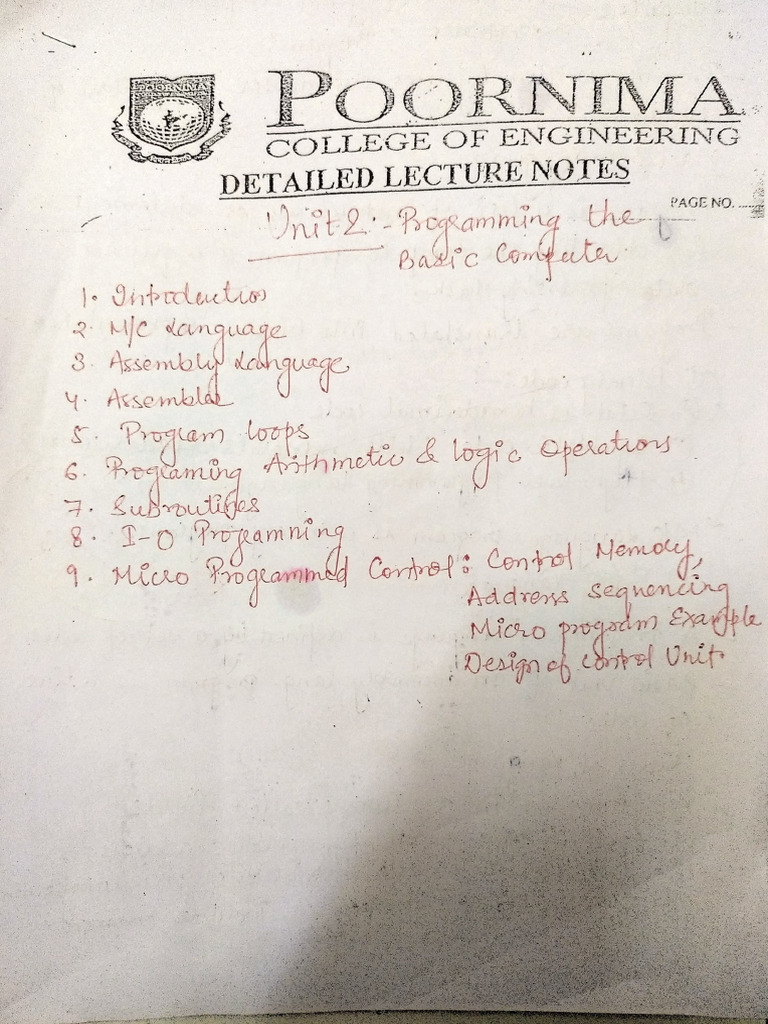 POORNIMA
POORNIMA
COLLEGE OF ENGINEERING
DETAILED LECTURE NOTES
PAGE NO. ......
Unit 2 - Programming the
Basic Computer
1. Introduction
2. M/C Language
3. Assembly Language
4. Assembler
5. Program loops
6. Programing Arithmetic & logic Operations
7. Subroutines
8. I-O Programming
9. Micro Programmed Control : Control Memory,
Address sequencing
Micro program Example
Design of control Unit.